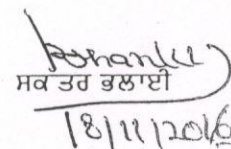 ਸਕੱਤਰ ਭਲਾਈ
18/11/2016